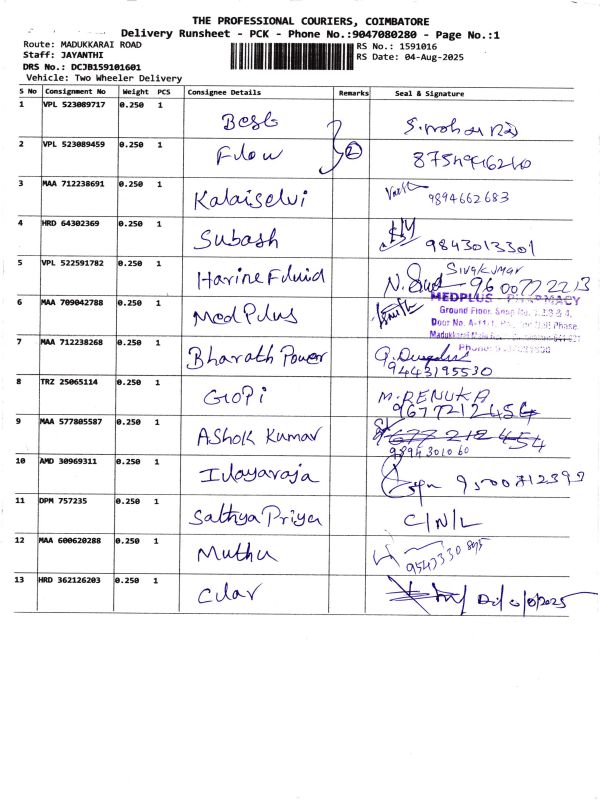 THE PROFESSIONAL COURIERS, COIMBATORE
Delivery Runsheet - PCK - Phone No.:9047080280 - Page No.:1
Route: MADUKKARAI ROAD
Staff: JAYANTHI
DRS No.: DCJB159101601
Vehicle: Two Wheeler Delivery
RS No.: 1591016
RS Date: 04-Aug-2025
S No Consignment No Weight PCS Consignee Details Remarks Seal & Signature
1 VPL 523089717 0.250 1 Best
2 VPL 523089459 0.250 1 Flow 2
3 MAA 712238691 0.250 1 Kalaiselvi 9894662683
4 HRD 64302369 0.250 1 Subash 9843013301
5 VPL 522591782 0.250 1 Harine Fluid SIVAKUMAR 9600772213
6 MAA 709042788 0.250 1 MedPlus
MEDPLUS PHARMACY
Ground Floor, Shop No. 1,2,3 & 4,
Door No.
Phase
7 MAA 712238268 0.250 1 Bharath Power
9443195530
8 TRZ 25065114 0.250 1 GOPi M. RENUKA
9677212454
9 MAA 577805587 0.250 1 Ashok Kumar
9894301060
10 AMD 30969311 0.250 1 Ilayaraja 9500712399
11 DPM 757235 0.250 1 Sathya Priya C/N/L
12 MAA 600620288 0.250 1 Muthu
13 HRD 362126203 0.250 1